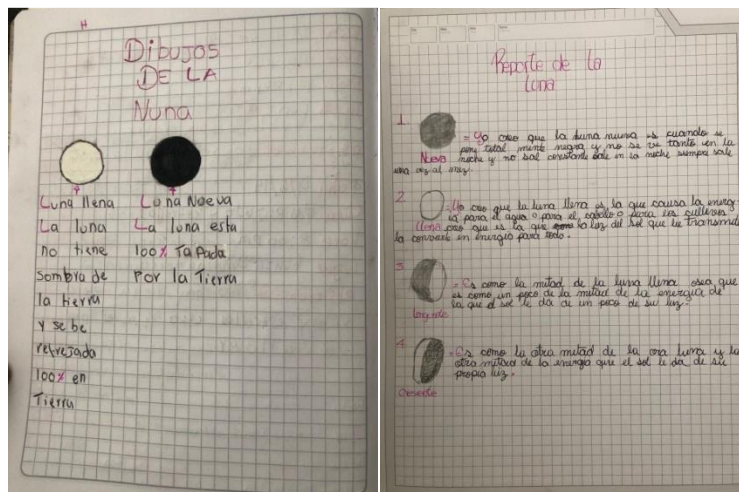 H
Dibujos
DE LA
Nuna
Luna llena
La luna
no tiene
sombra de
la tierra
y se be
refrejada
100% en
Tierra
Luna Nueva
La luna esta
100% Tapada
Por la Tierra
Reporte de la
Luna
1.
Nueva
= Yo creo que la luna nueva es cuando se
pone total mente negra y no se ve tanto en la
noche y no sal en la noche siempre sale
una vez al mez.
2.
Llena
= Yo creo que la luna llena es la que causa la energ-
ia para el agua o para el cabello o para los cultivos
creo que es la que la luz del sol que le transmite
la convierte en energia para todo.
3.
= Es como la mitad de la luna llena osea que
es como un poco de la mitad de la energia de
la que el sol le da de un poco de su luz.
4.
= Es como la otra mitad de la luna y la
otra mitad de la energia que el sol le da de su
propia luz.